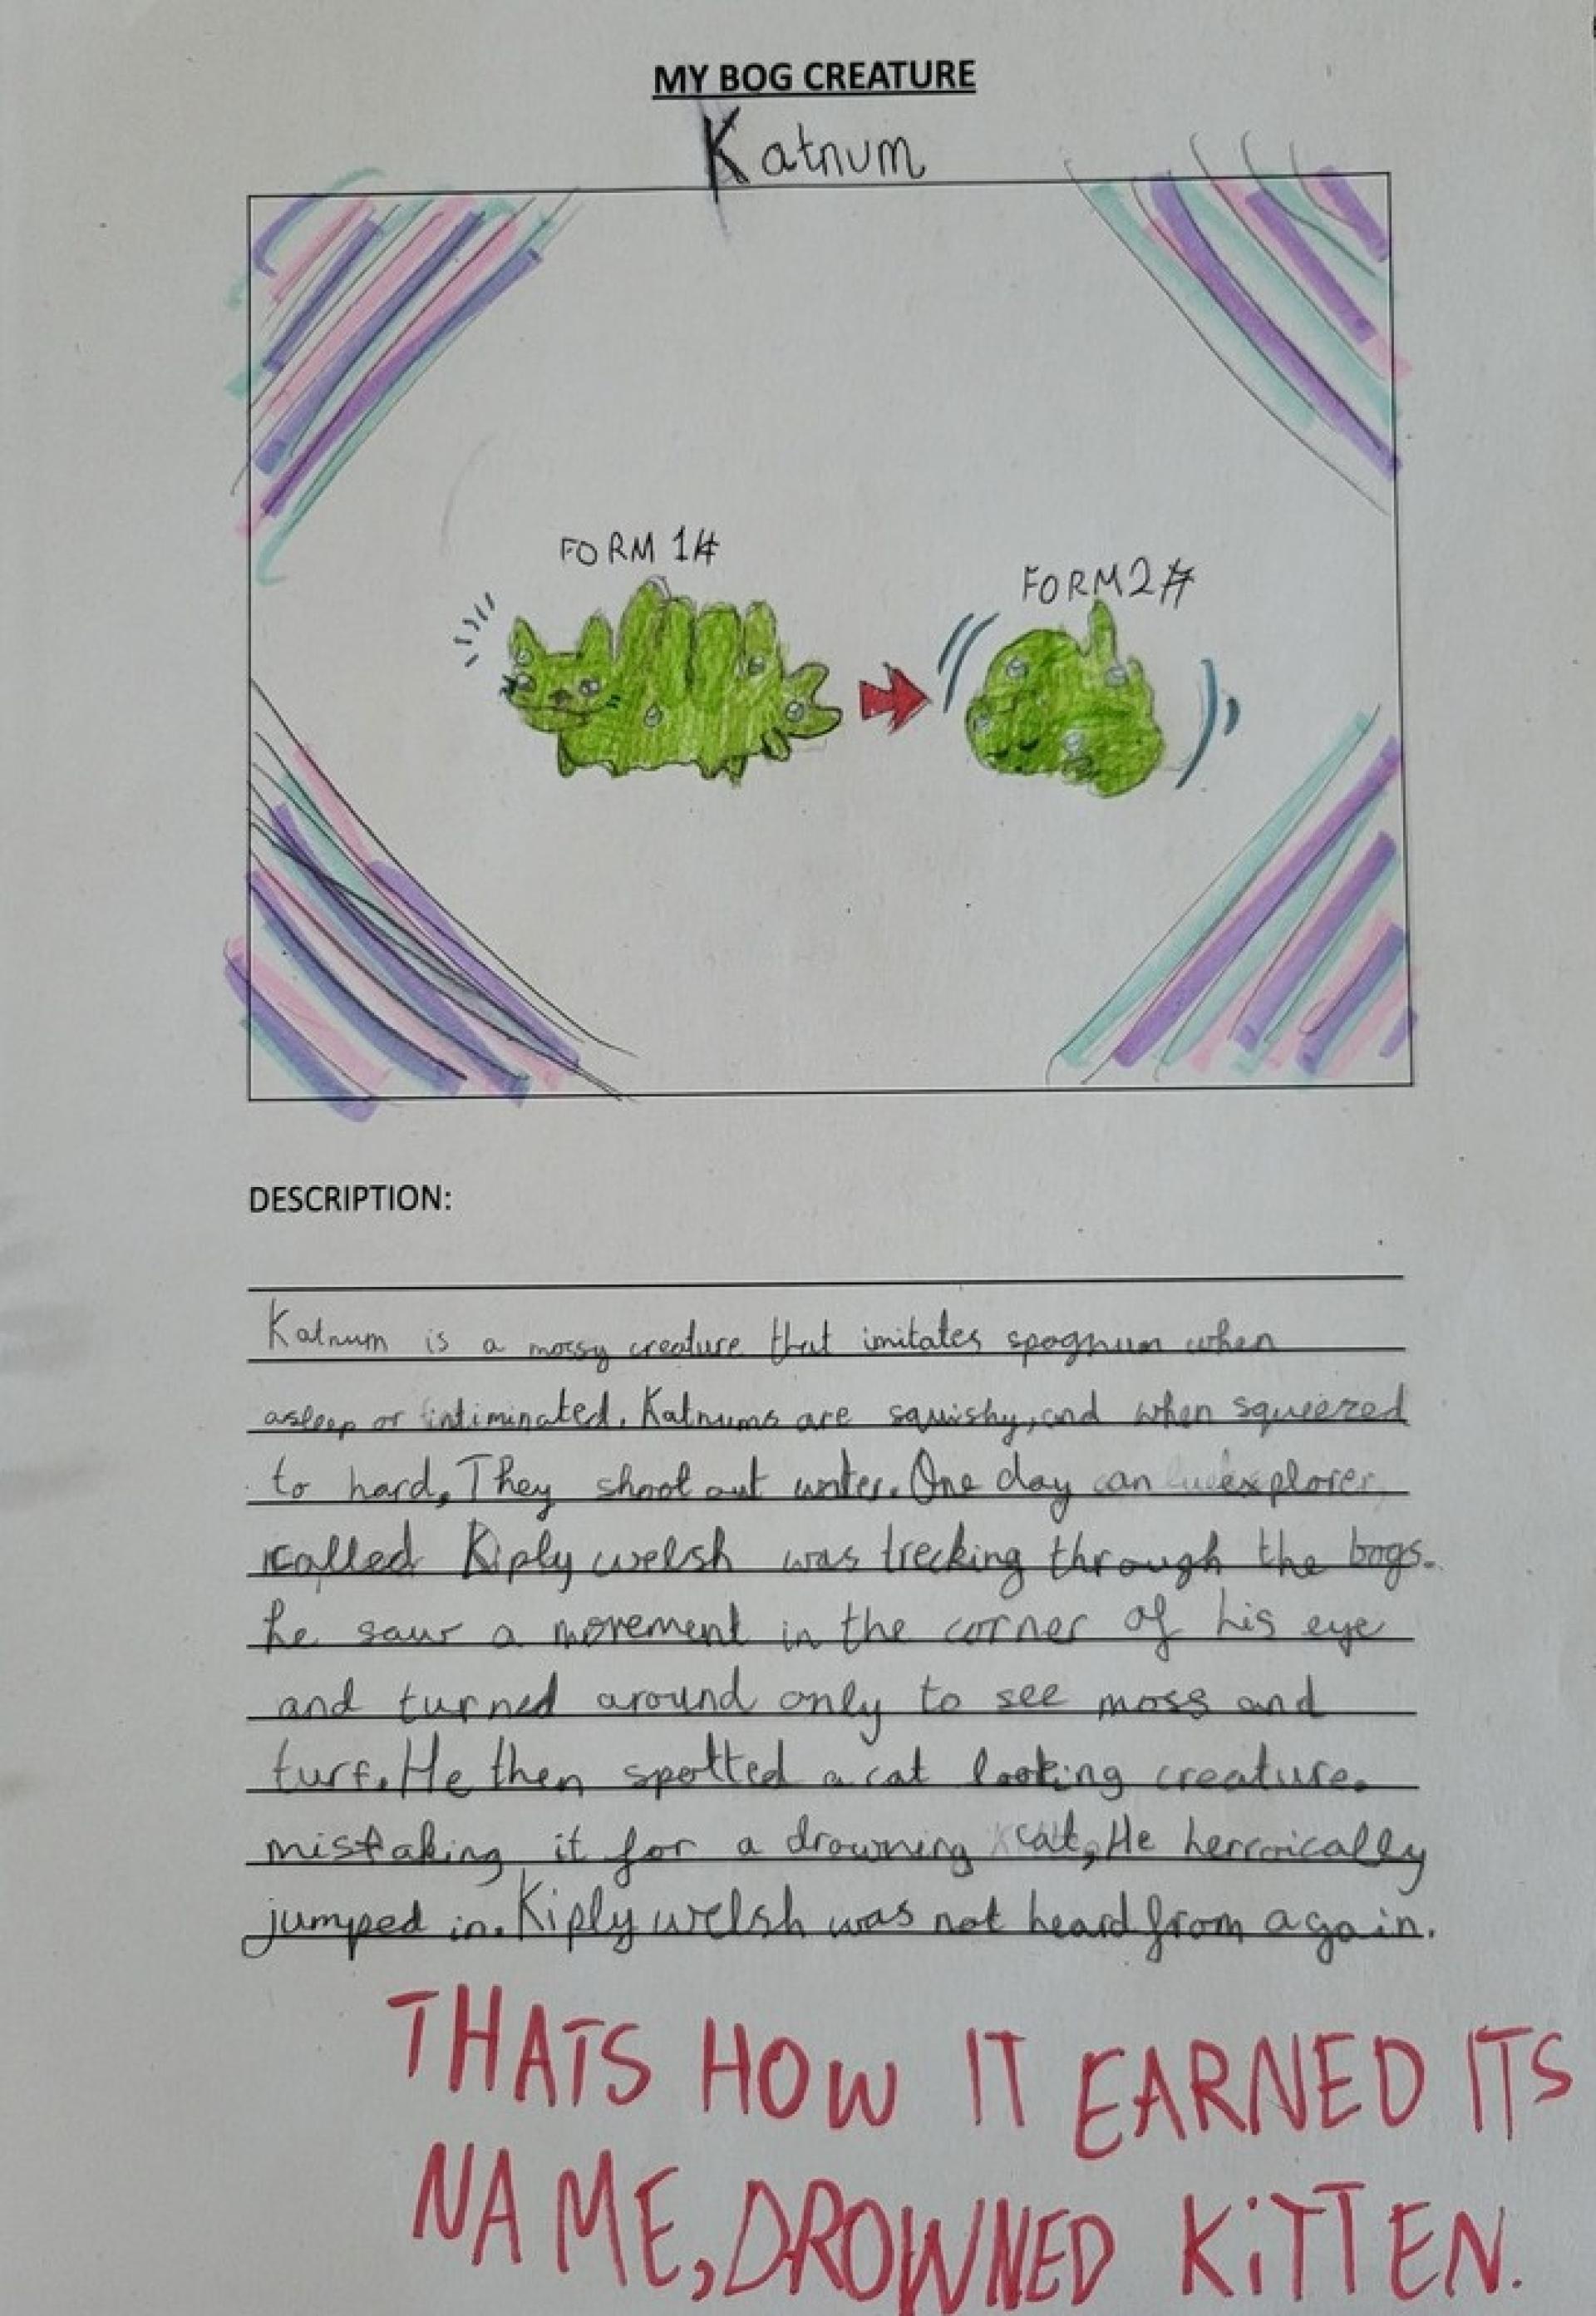 MY BOG CREATURE
Katnum
FORM 1#
FORM 2#
DESCRIPTION:
Katnum is a mossy creature that imitates spognum when
asleep or intiminated. Katnums are squishy, and when squeezed
to hard, They shoot out water. One day an explorer
called Kiply welsh was trecking through the bogs.
he saw a movement in the corner of his eye
and turned around only to see moss and
turf. He then spotted a cat looking creature.
mistaking it for a drowning cat, He herroically
jumped in. Kiply welsh was not heard from again.
THATS HOW IT EARNED ITS
NAME, DROWNED KiTTEN.